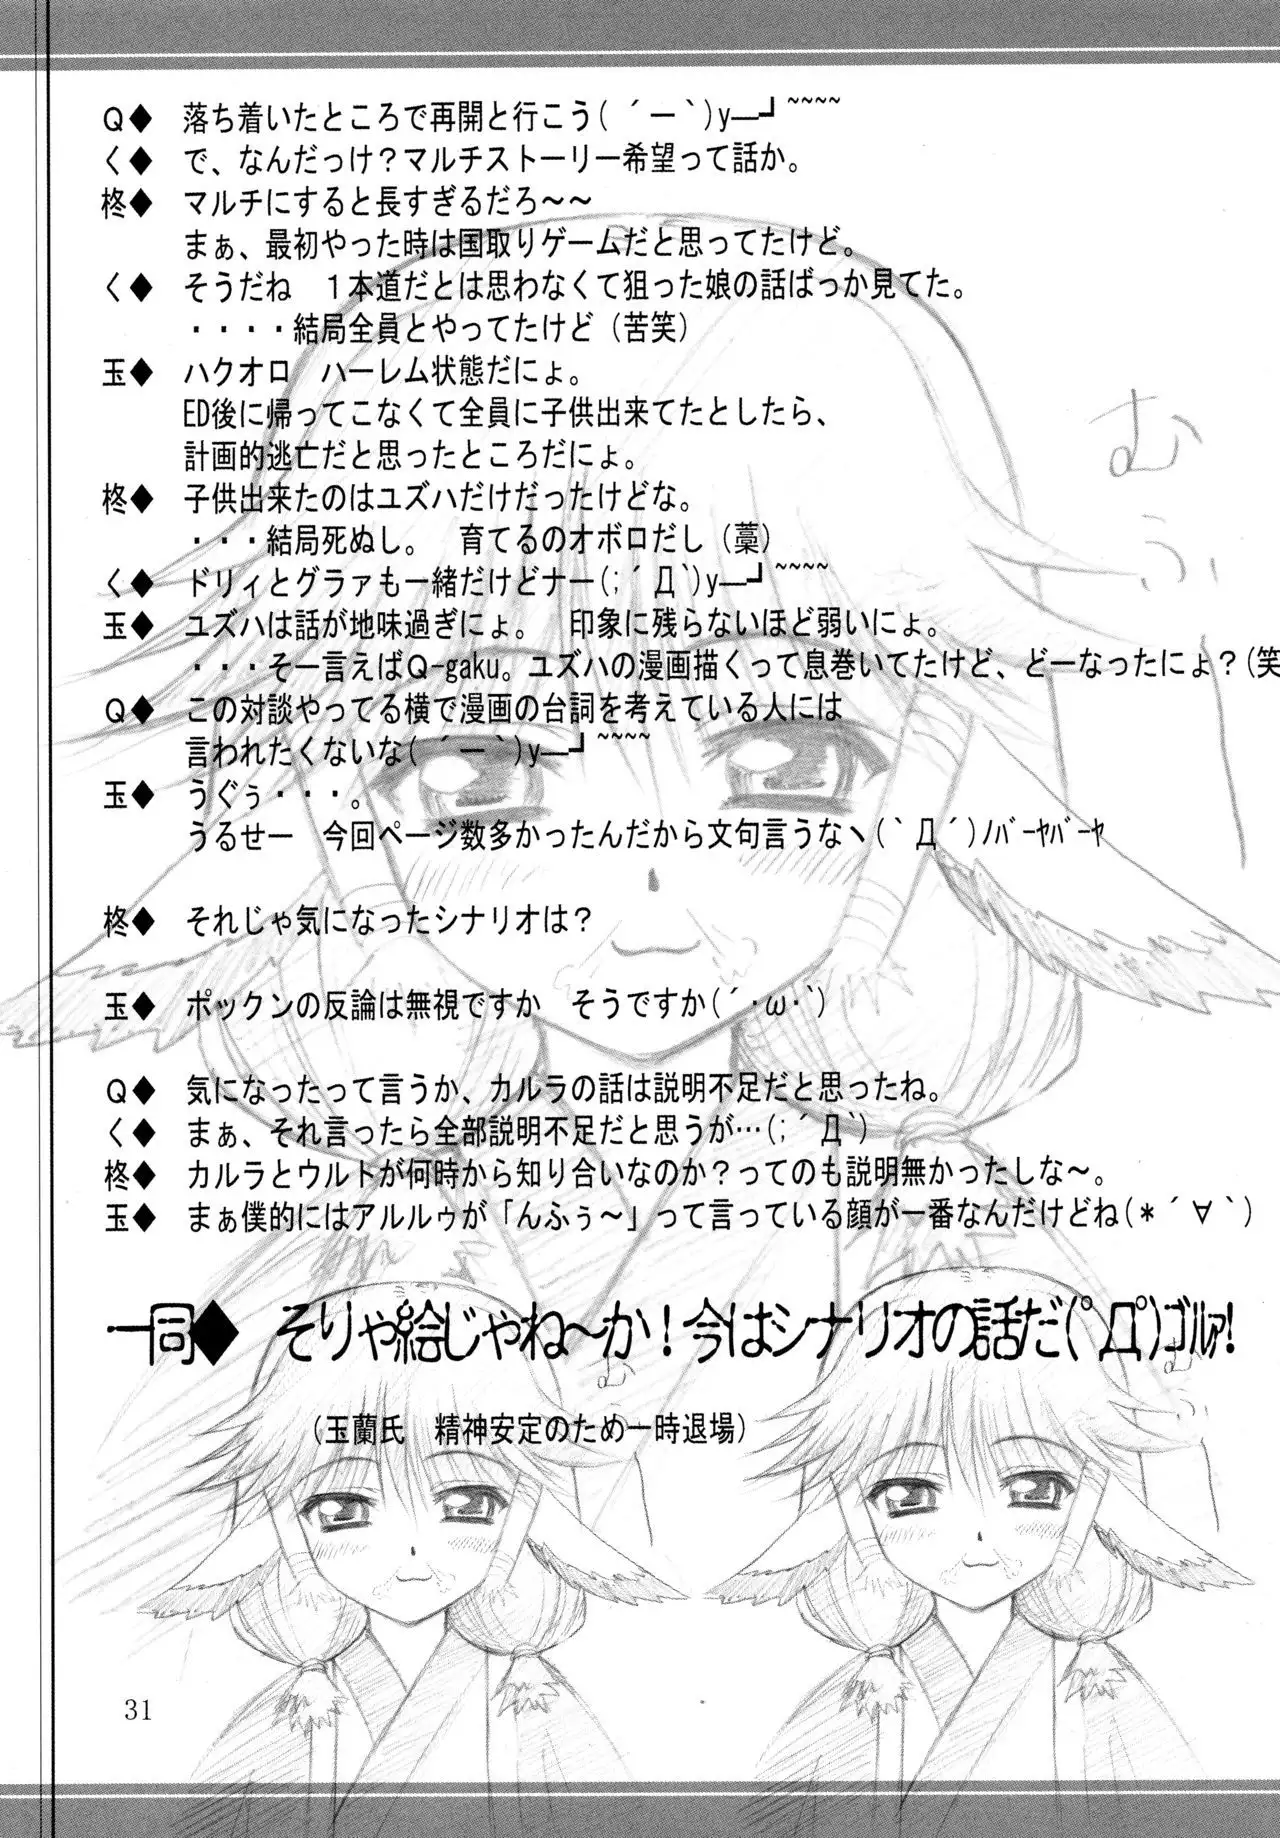 Q◆ 落ち着いたところで再開と行こう( ´ー`)y─┛~~~~
く◆ で、なんだっけ？マルチストーリー希望って話か。
柊◆ マルチにすると長すぎるだろ～～
まぁ、最初やった時は国取りゲームだと思ってたけど。
く◆ そうだね　１本道だとは思わなくて狙った娘の話ばっか見てた。
・・・・結局全員とやってたけど（苦笑）
玉◆ ハクオロ　ハーレム状態だにょ。
ED後に帰ってこなくて全員に子供出来てたとしたら、
計画的逃亡だと思ったところだにょ。
柊◆ 子供出来たのはユズハだけだったけどな。
・・・結局死ぬし。　育てるのオボロだし（藁）
く◆ ドリィとグラァも一緒だけどナー(;´Д`)y─┛~~~~
玉◆ ユズハは話が地味過ぎにょ。　印象に残らないほど弱いにょ。
・・・そー言えばQ-gaku。ユズハの漫画描くって息巻いてたけど、どーなったにょ？(笑
Q◆ この対談やってる横で漫画の台詞を考えている人には
言われたくないな( ´ー`)y─┛~~~~
玉◆ うぐぅ・・・。
うるせー　今回ページ数多かったんだから文句言うなヽ(`Д´)ﾉﾊﾞｰﾔﾊﾞｰﾔ
柊◆ それじゃ気になったシナリオは？
玉◆ ポックンの反論は無視ですか　そうですか(´・ω・`)
Q◆ 気になったって言うか、カルラの話は説明不足だと思ったね。
く◆ まぁ、それ言ったら全部説明不足だと思うが…(;´Д`)
柊◆ カルラとウルトが何時から知り合いなのか？ってのも説明無かったしな～。
玉◆ まぁ僕的にはアルルゥが「んふぅ～」って言っている顔が一番なんだけどね(＊´∀`)
一同◆ そりゃ絵じゃね～か！今はシナリオの話だ(ﾟДﾟ)ｺﾞﾙｧ!
（玉蘭氏　精神安定のため一時退場）
むふー
む
む
31